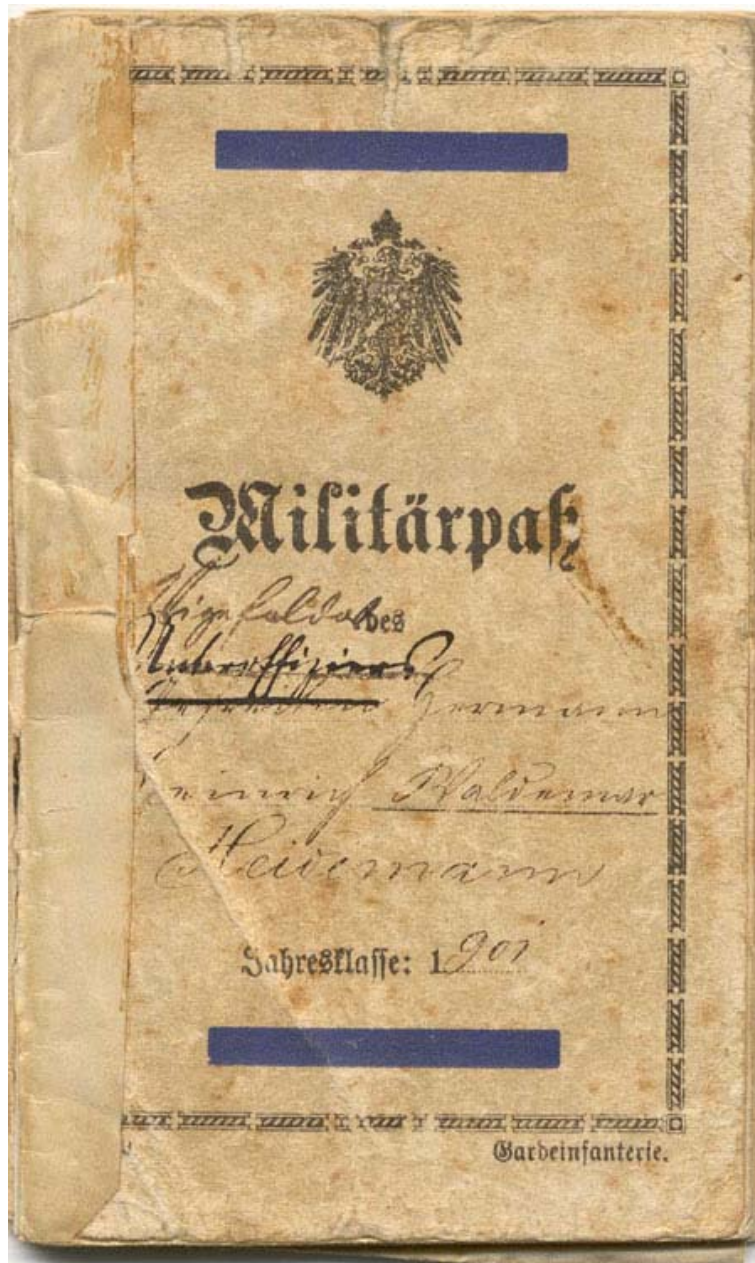 Militärpaß
des
Unteroffiziers
Gefreiten Hermann
einrich Waldemar
Heidemann
Jahresklasse: 1901
Gardeinfanterie.